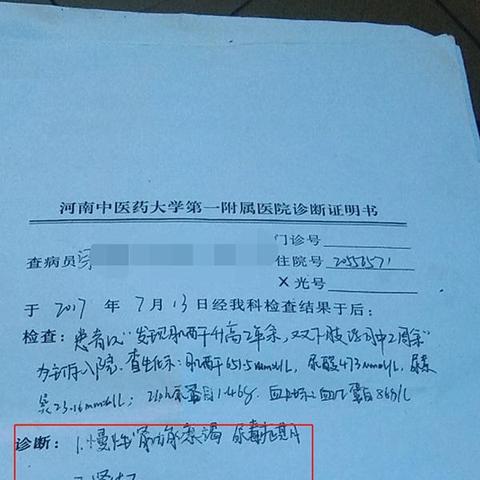 河南中医药大学第一附属医院诊断证明书
门诊号
查病员 住院号 20556571
X光号
于 2017 年 7 月 13 日经我科检查结果于后:
检查: 患者以"发现肌酐升高2年余,双下肢浮肿2周余"
为主诉入院. 查生化示:肌酐651.5mmol/L, 尿酸473mmol/L, 尿素
氮23.16mmol/L; 24h尿蛋白1.46g. 血常规:血红蛋白86g/L
诊断: 1.慢性肾功能衰竭 尿毒症期